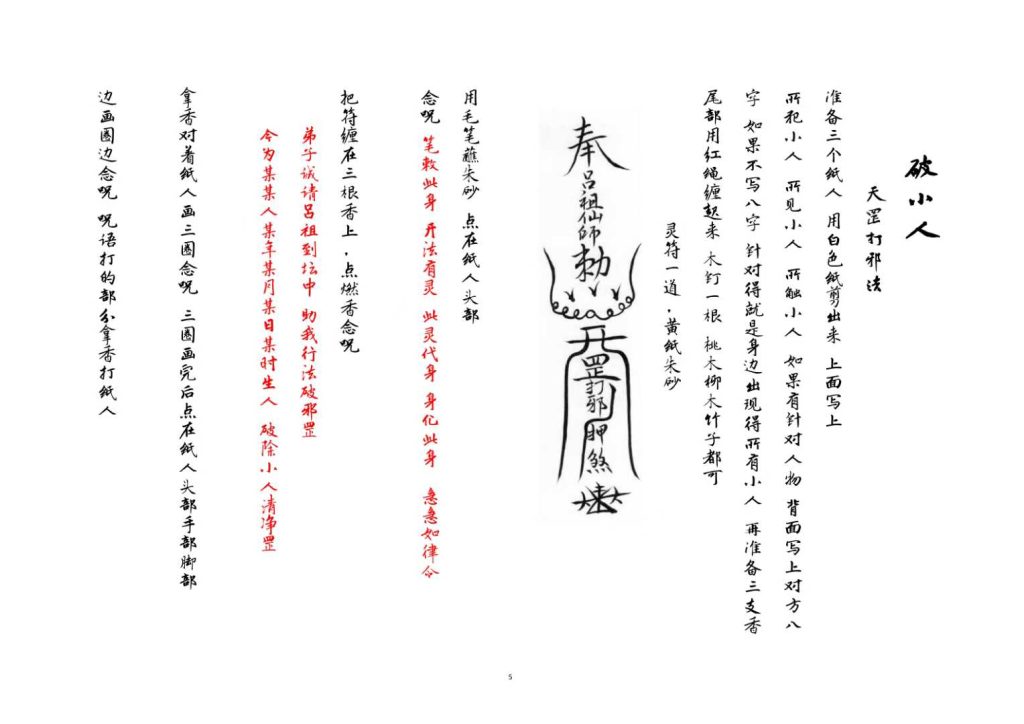 破小人
天罡打邪法
准备三个纸人 用白色纸剪出来 上面写上
所犯小人 所见小人 所触小人 如果有针对人物 背面写上对方八
字 如果不写八字 针对得就是身边出现得所有小人 再准备三支香
尾部用红绳缠起来 木钉一根 桃木柳木竹子都可
灵符一道，黄纸朱砂
奉
吕祖仙師
勅
罡打邪押煞
用毛笔蘸朱砂 点在纸人头部
念咒 笔敕此身 开法有灵 此灵代身 身化此身 急急如律令
把符缠在三根香上，点燃香念咒
弟子诚请吕祖到坛中 助我行法破邪罡
今为某某人某年某月某日某时生人 破除小人清净罡
拿香对着纸人画三圈念咒 三圈画完后点在纸人头部手部脚部
边画圈边念咒 咒语打的部分拿香打纸人
5